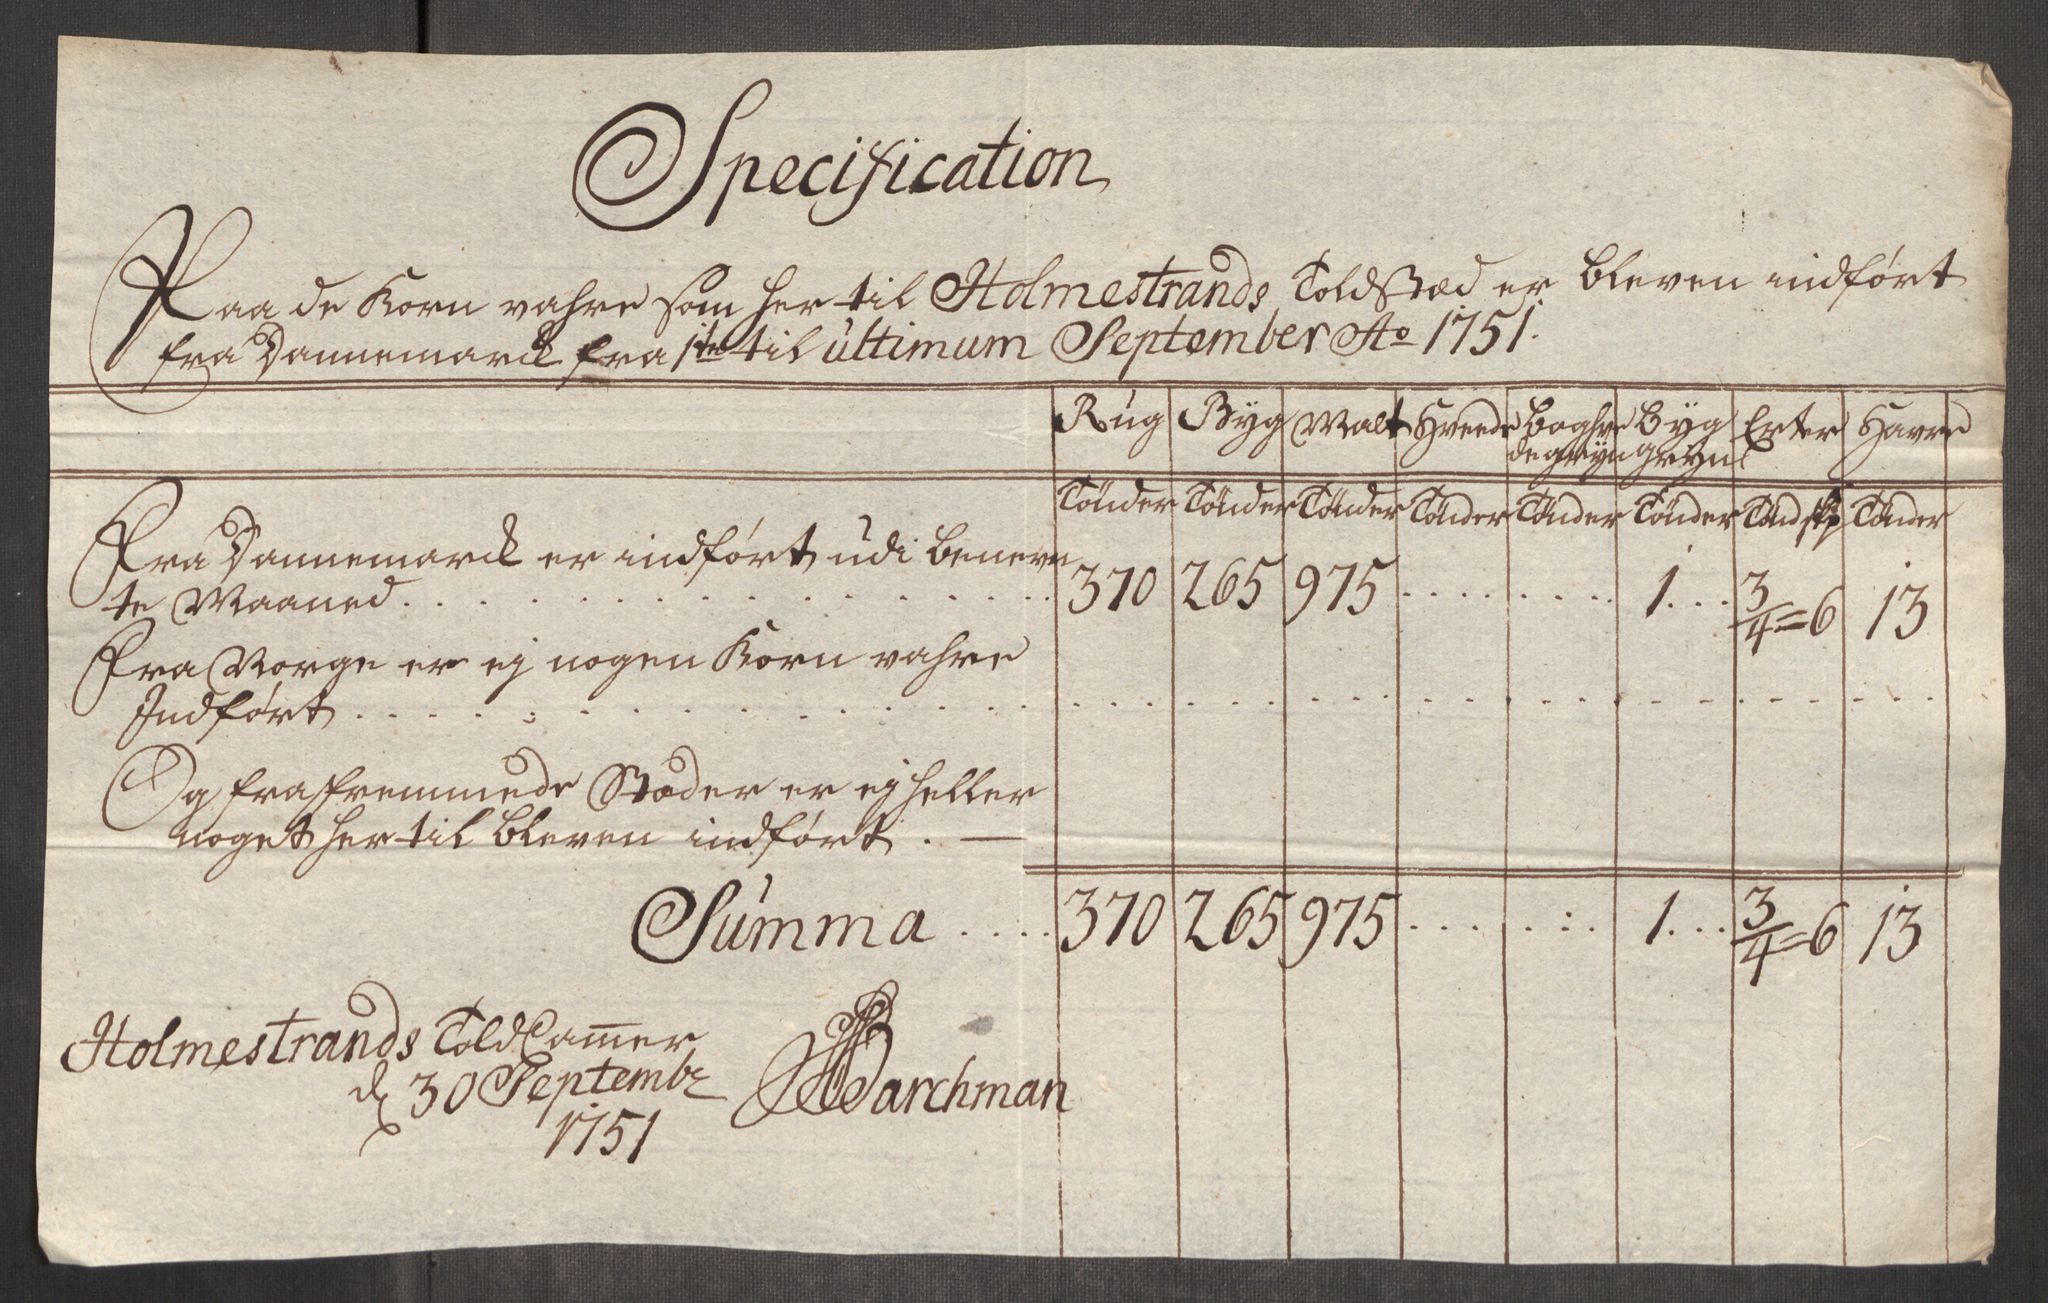 Specification
Paa de Korn vahre som her til Holmestrands Toldstæd er bleven indført
fra Dannemarck fra 1ste til ultimum September Ao 1751.
Rug Byg Malt Hveede Boghve Byg Erter Havre
degryn gryn
Tönder Tönder Tönder Tönder Tönder Tönder Tönd skp Tönder
Fra Dannemarck er indført udi benevn
te Maaned . . . . . . . . 370 265 975 . . . . . . . . 1 . . . 3/4=6 13
Fra Norge er ej nogen Korn vahre
Indført . . . . . . . .
Og fra fremmede Stæder er ej heller
noget her til bleven indført . —
Summa . . . . 370 265 975 . . . . . . . . 1 . . . 3/4=6 13
Holmestrands Told Cam̄er
d 30 Septembr
1751
Barchman